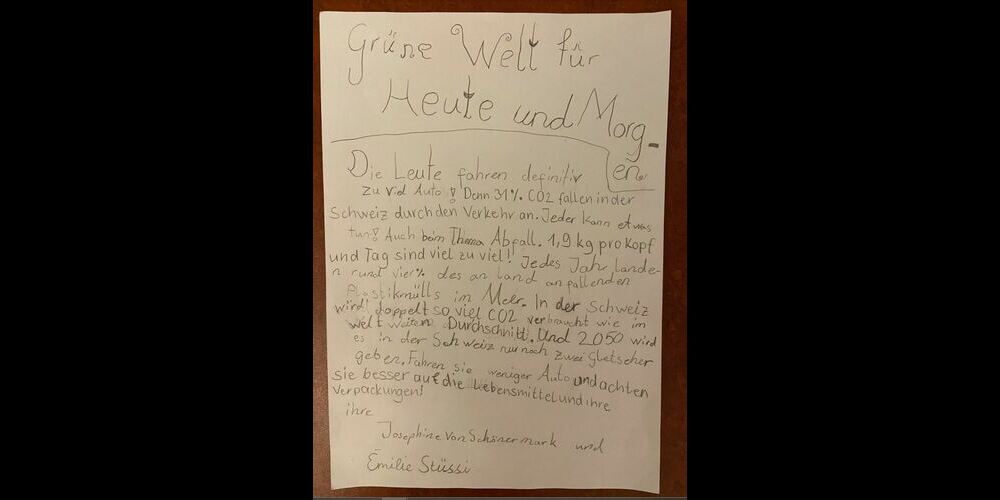 Grüne Welt für
Heute und Morg-
en.
Die Leute fahren definitiv
zu viel Auto! Denn 31% CO2 fallen in der
Schweiz durch den Verkehr an. Jeder kann etwas
tun! Auch beim Thema Abfall. 1,9 kg pro Kopf
und Tag sind viel zu viel! Jedes Jahr lande-
n rund vier% des an land anfallenden
Plastikmülls im Meer. In der Schweiz
wird doppelt so viel CO2 verbraucht wie im
welt weiten Durchschnitt. Und 2050 wird
es in der Schweiz nur noch zwei Gletscher
geben. Fahren sie weniger Auto und achten
sie besser auf die Lebensmittel und ihre
Verpackungen!
ihre
Josephine von Schönermark und
Emilie Stüssi